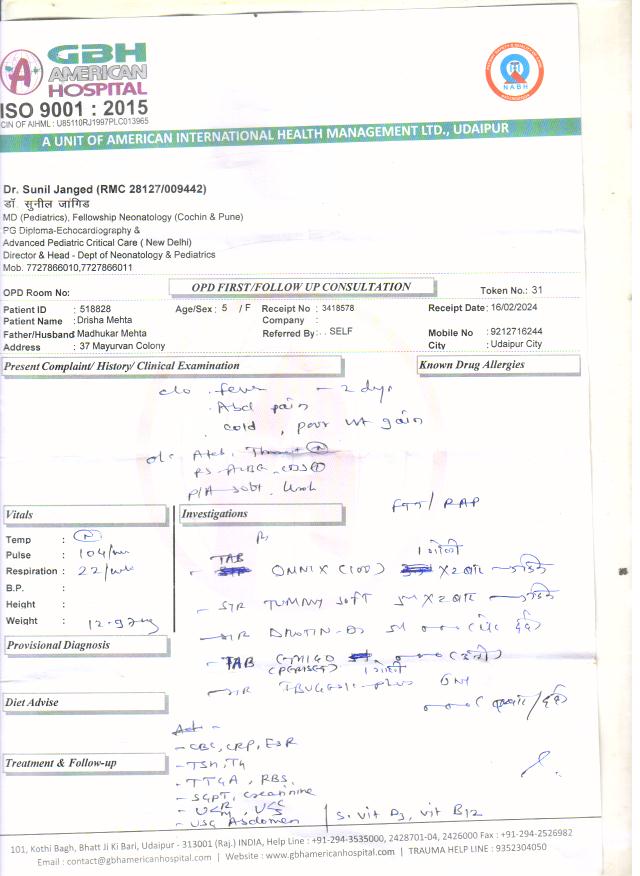 GBH
AMERICAN
HOSPITAL
ISO 9001 : 2015
CIN OF AIHML : U85110RJ1997PLC013965
NABH
A UNIT OF AMERICAN INTERNATIONAL HEALTH MANAGEMENT LTD., UDAIPUR
Dr. Sunil Janged (RMC 28127/009442)
डॉ. सुनील जांगिड
MD (Pediatrics), Fellowship Neonatology (Cochin & Pune)
PG Diploma-Echocardiography &
Advanced Pediatric Critical Care ( New Delhi)
Director & Head - Dept of Neonatology & Pediatrics
Mob. 7727866010,7727866011
OPD Room No: OPD FIRST/FOLLOW UP CONSULTATION Token No.: 31
Patient ID : 518828 Age/Sex : 5 / F Receipt No : 3418578 Receipt Date: 16/02/2024
Patient Name : Drisha Mehta Company :
Father/Husband Madhukar Mehta Referred By: . . SELF Mobile No : 9212716244
Address : 37 Mayurvan Colony City : Udaipur City
Present Complaint/ History/ Clinical Examination Known Drug Allergies
c/o fever - 2 days
Abd pain
cold , poor wt gain
P/A soft
FTT / RAP
Vitals Investigations
Temp : N
Pulse : 104/
Respiration : 22/
B.P. :
Height :
Weight : 12.9
Provisional Diagnosis
Rx
TAB OMNIX (100) 1 गोली X 2 बार
SYR TUMMY SOFT 5ml X 2 बार
SYR DROTIN-DS 5ml
TAB 1 गोली
SYR IBUGESIC-plus 6ml
Diet Advise
Adv -
- CBC, CRP, ESR
Treatment & Follow-up
- TSH, T4
- TTGA, RBS,
- SGPT, creatinine
- USG Abdomen S. vit D3, vit B12
101, Kothi Bagh, Bhatt Ji Ki Bari, Udaipur - 313001 (Raj.) INDIA, Help Line : +91-294-3535000, 2428701-04, 2426000 Fax : +91-294-2526982
Email : contact@gbhamericanhospital.com | Website : www.gbhamericanhospital.com | TRAUMA HELP LINE : 9352304050